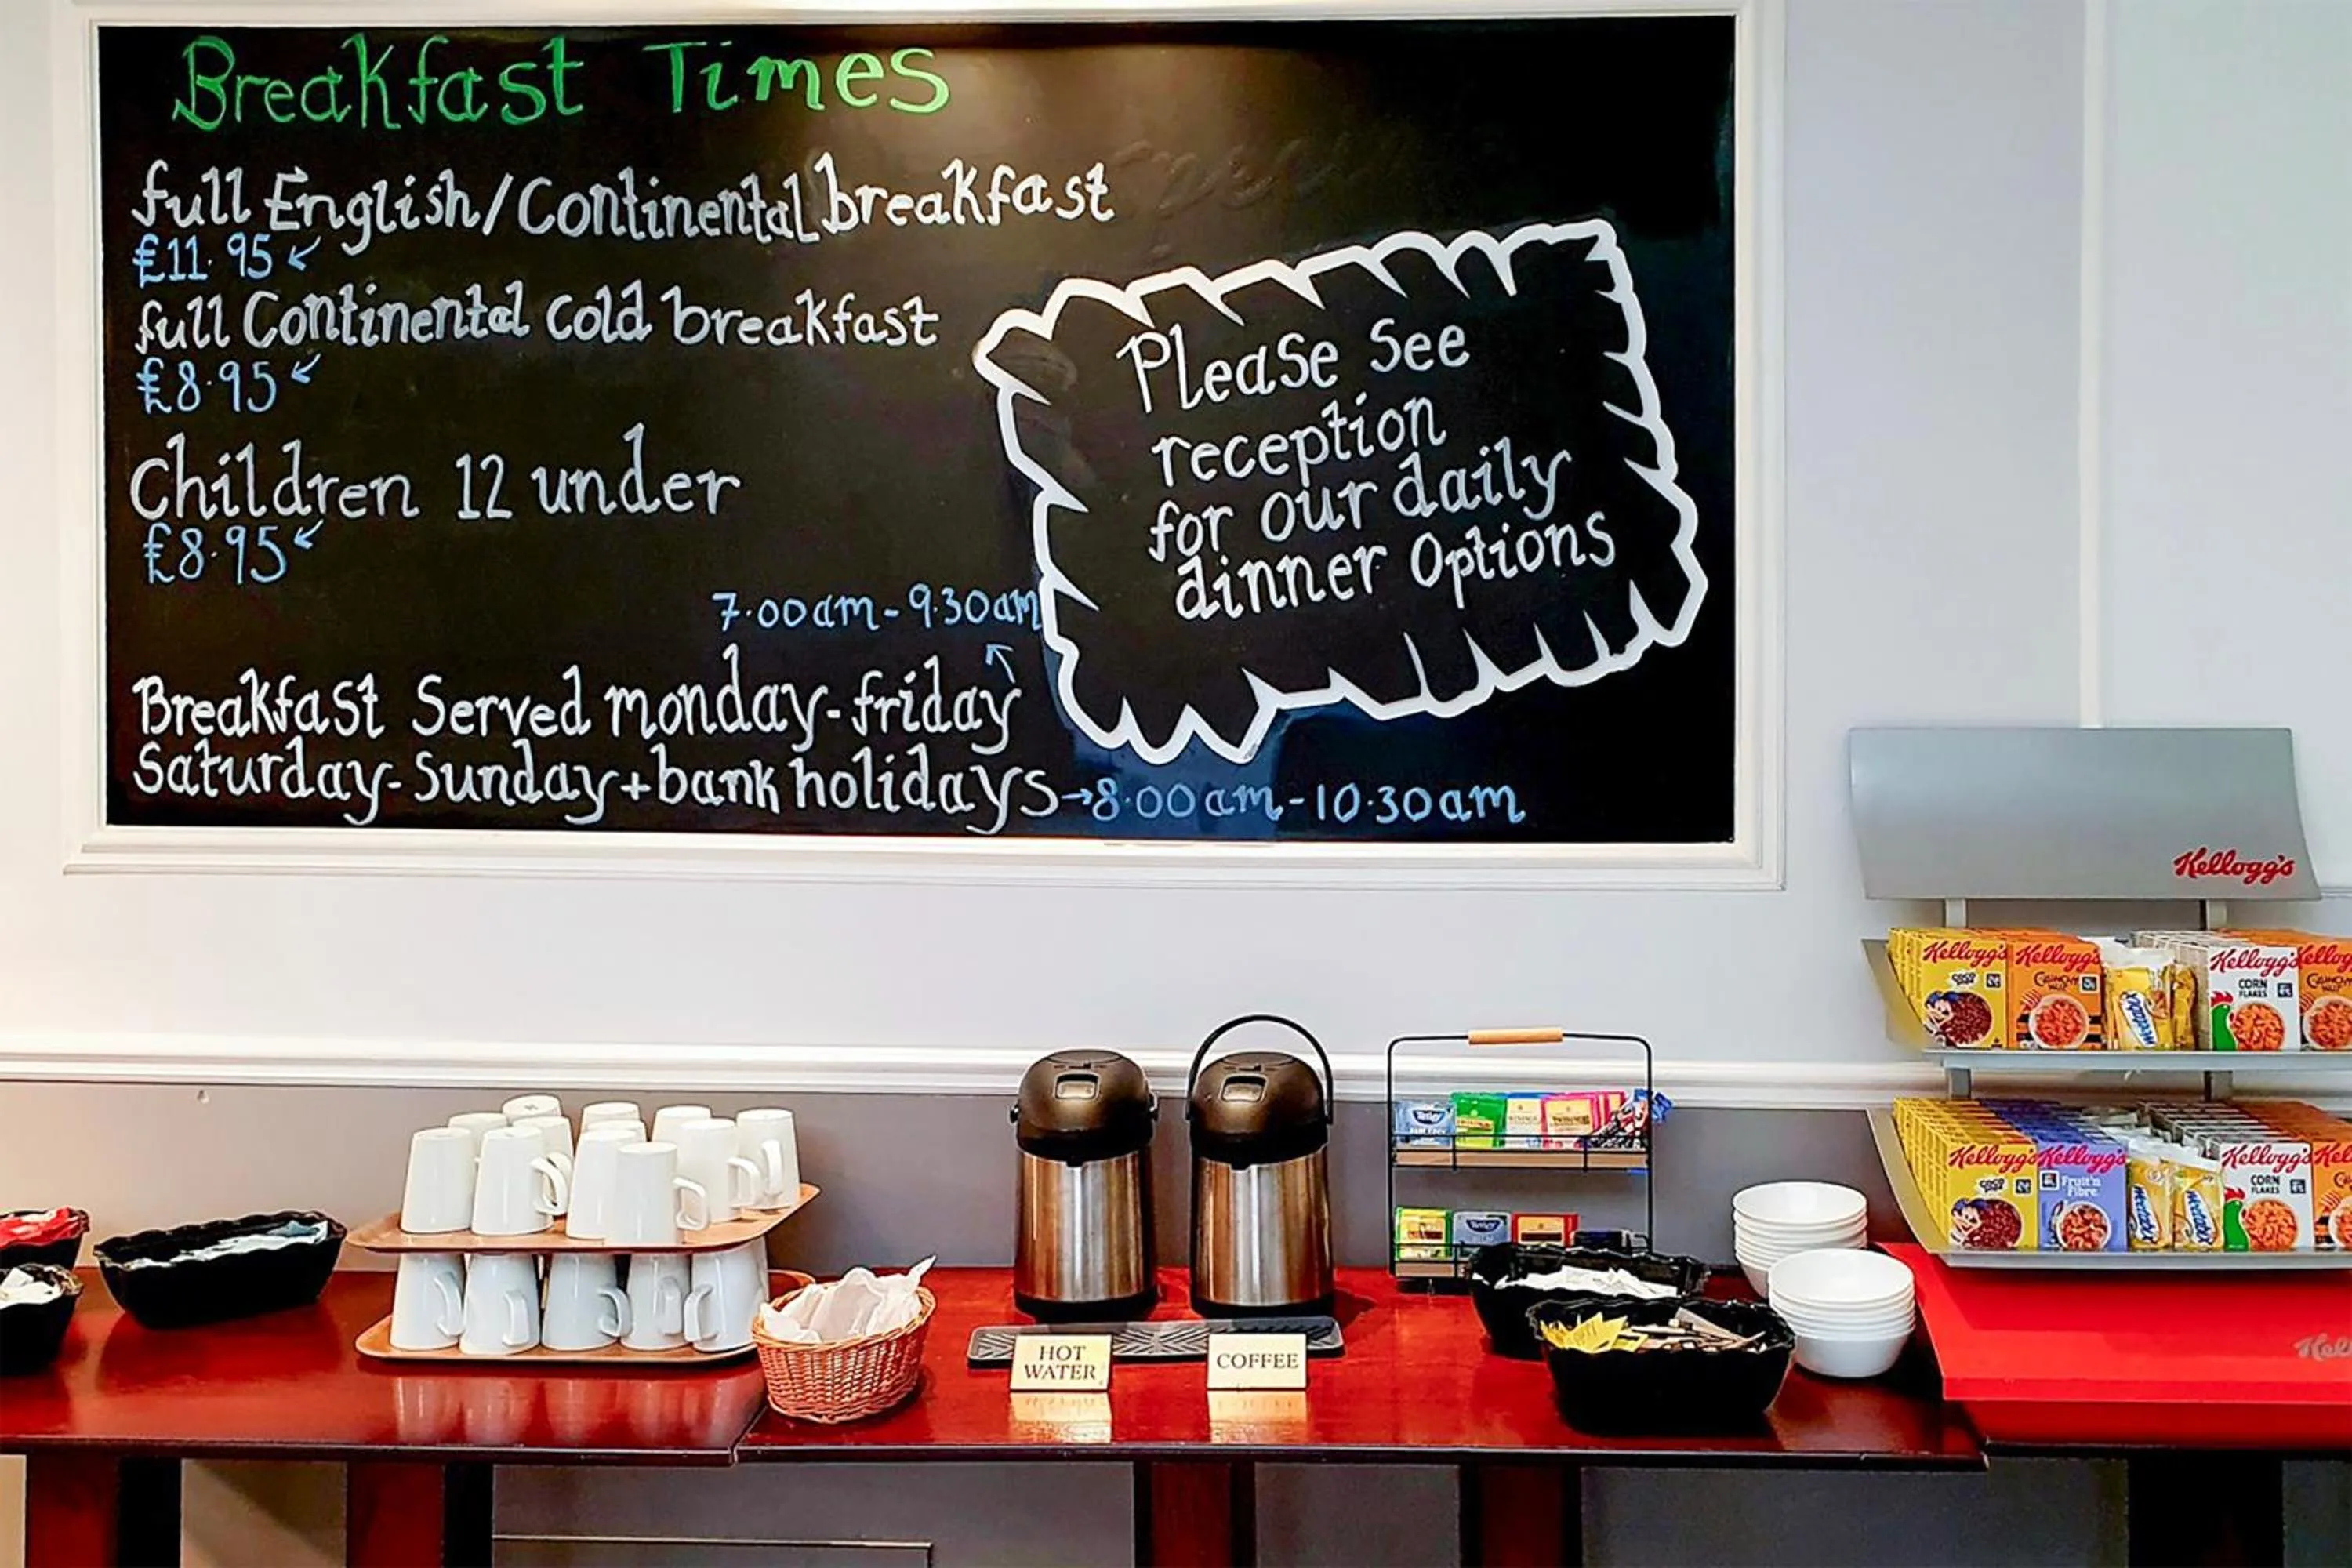 Breakfast Times
full English/Continental breakfast
£11.95
full Continental cold breakfast
£8.95
Children 12 under
£8.95
7.00am-9.30am
Breakfast Served monday-friday
Saturday-Sunday+bank holidays→8.00am-10.30am
Please See
reception
for our daily
dinner Options
Kellogg's
Kellogg's
Kellogg's
CRUNCHY NUT
Weetabix
Kellogg's
CORN FLAKES
Kellogg's
Kellogg's
Fruit'n Fibre
Weetabix
Weetabix
Kellogg's
CORN FLAKES
Tetley
TWININGS
TWININGS
Tetley
HOT
WATER
COFFEE